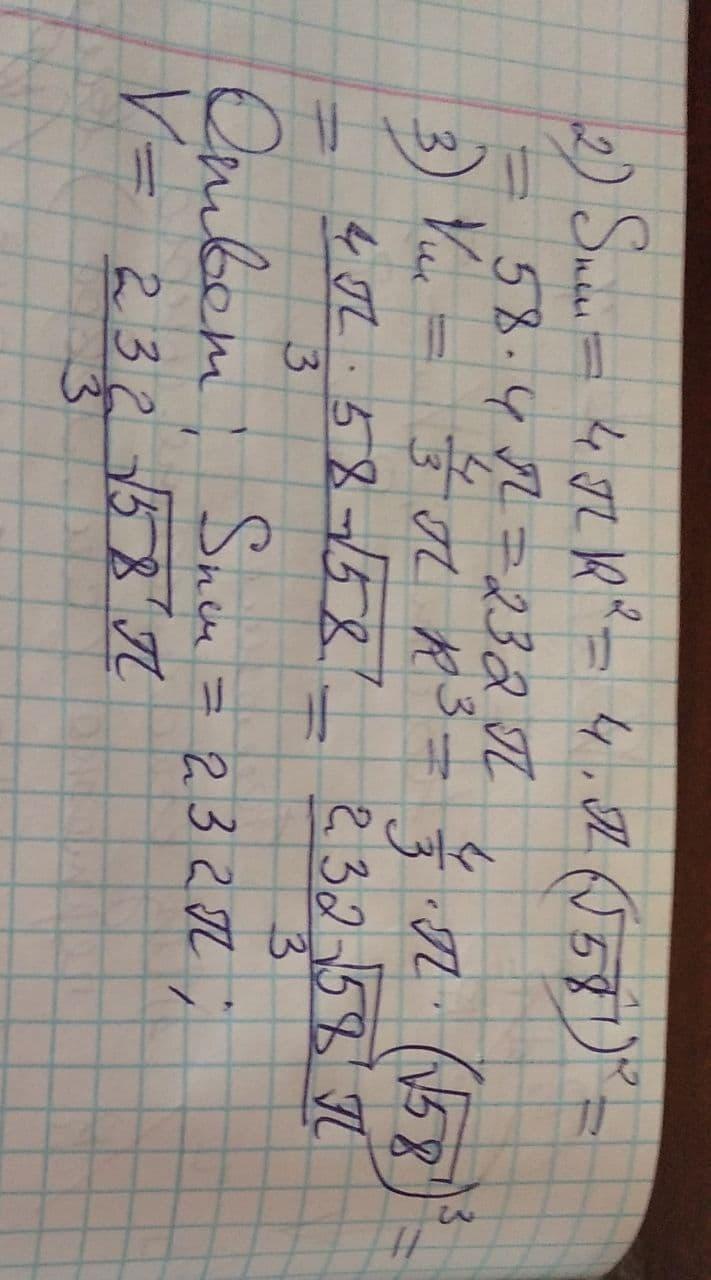 2) Sпш = 4πR² = 4·π(√58)² =
= 58·4π = 232π
3) Vш = 4/3 π R³ = 4/3·π·(√58)³ =
= 4π·58√58/3 = 232√58π/3
Ответ: Sпш = 232π;
V = 232√58π/3